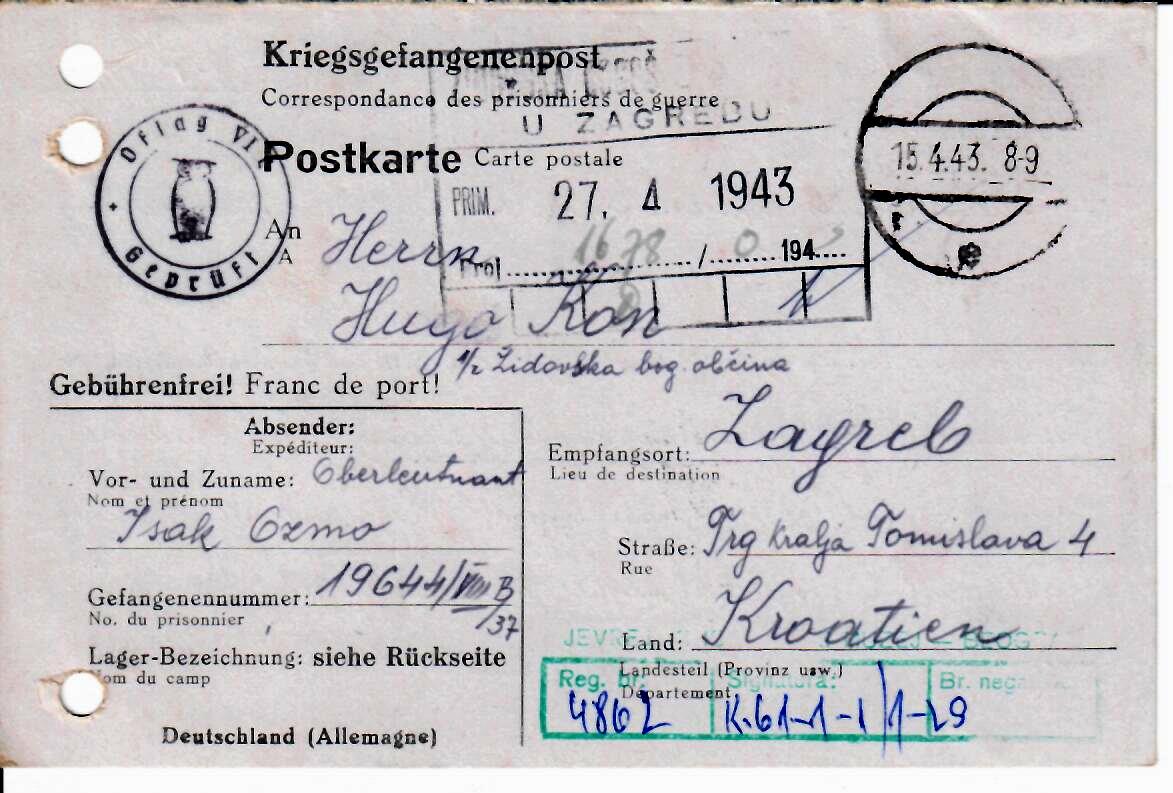 Kriegsgefangenenpost
Correspondance des prisonniers de guerre
U ZAGREBU
Oflag VI
Geprüft
Postkarte Carte postale
15.4.43. 8-9
PRIM. 27. 4 1943
1678 / 0 194
An
A
Herrn
Hugo Kon
1/z Židovska bog. občina
Gebührenfrei! Franc de port!
Absender:
Expéditeur:
Vor- und Zuname: Oberleutnant
Nom et prénom
Isak Ozmo
Gefangenennummer: 19644/VIII B
/37
No. du prisonnier
Lager-Bezeichnung: siehe Rückseite
Nom du camp
Deutschland (Allemagne)
Empfangsort: Zagreb
Lieu de destination
Straße: Trg Kralja Tomislava 4
Rue
Land: Kroatien
Landesteil (Provinz usw.)
Département
Reg. br. Signatura: Br. neg
4862 K.61-1-1/1-29